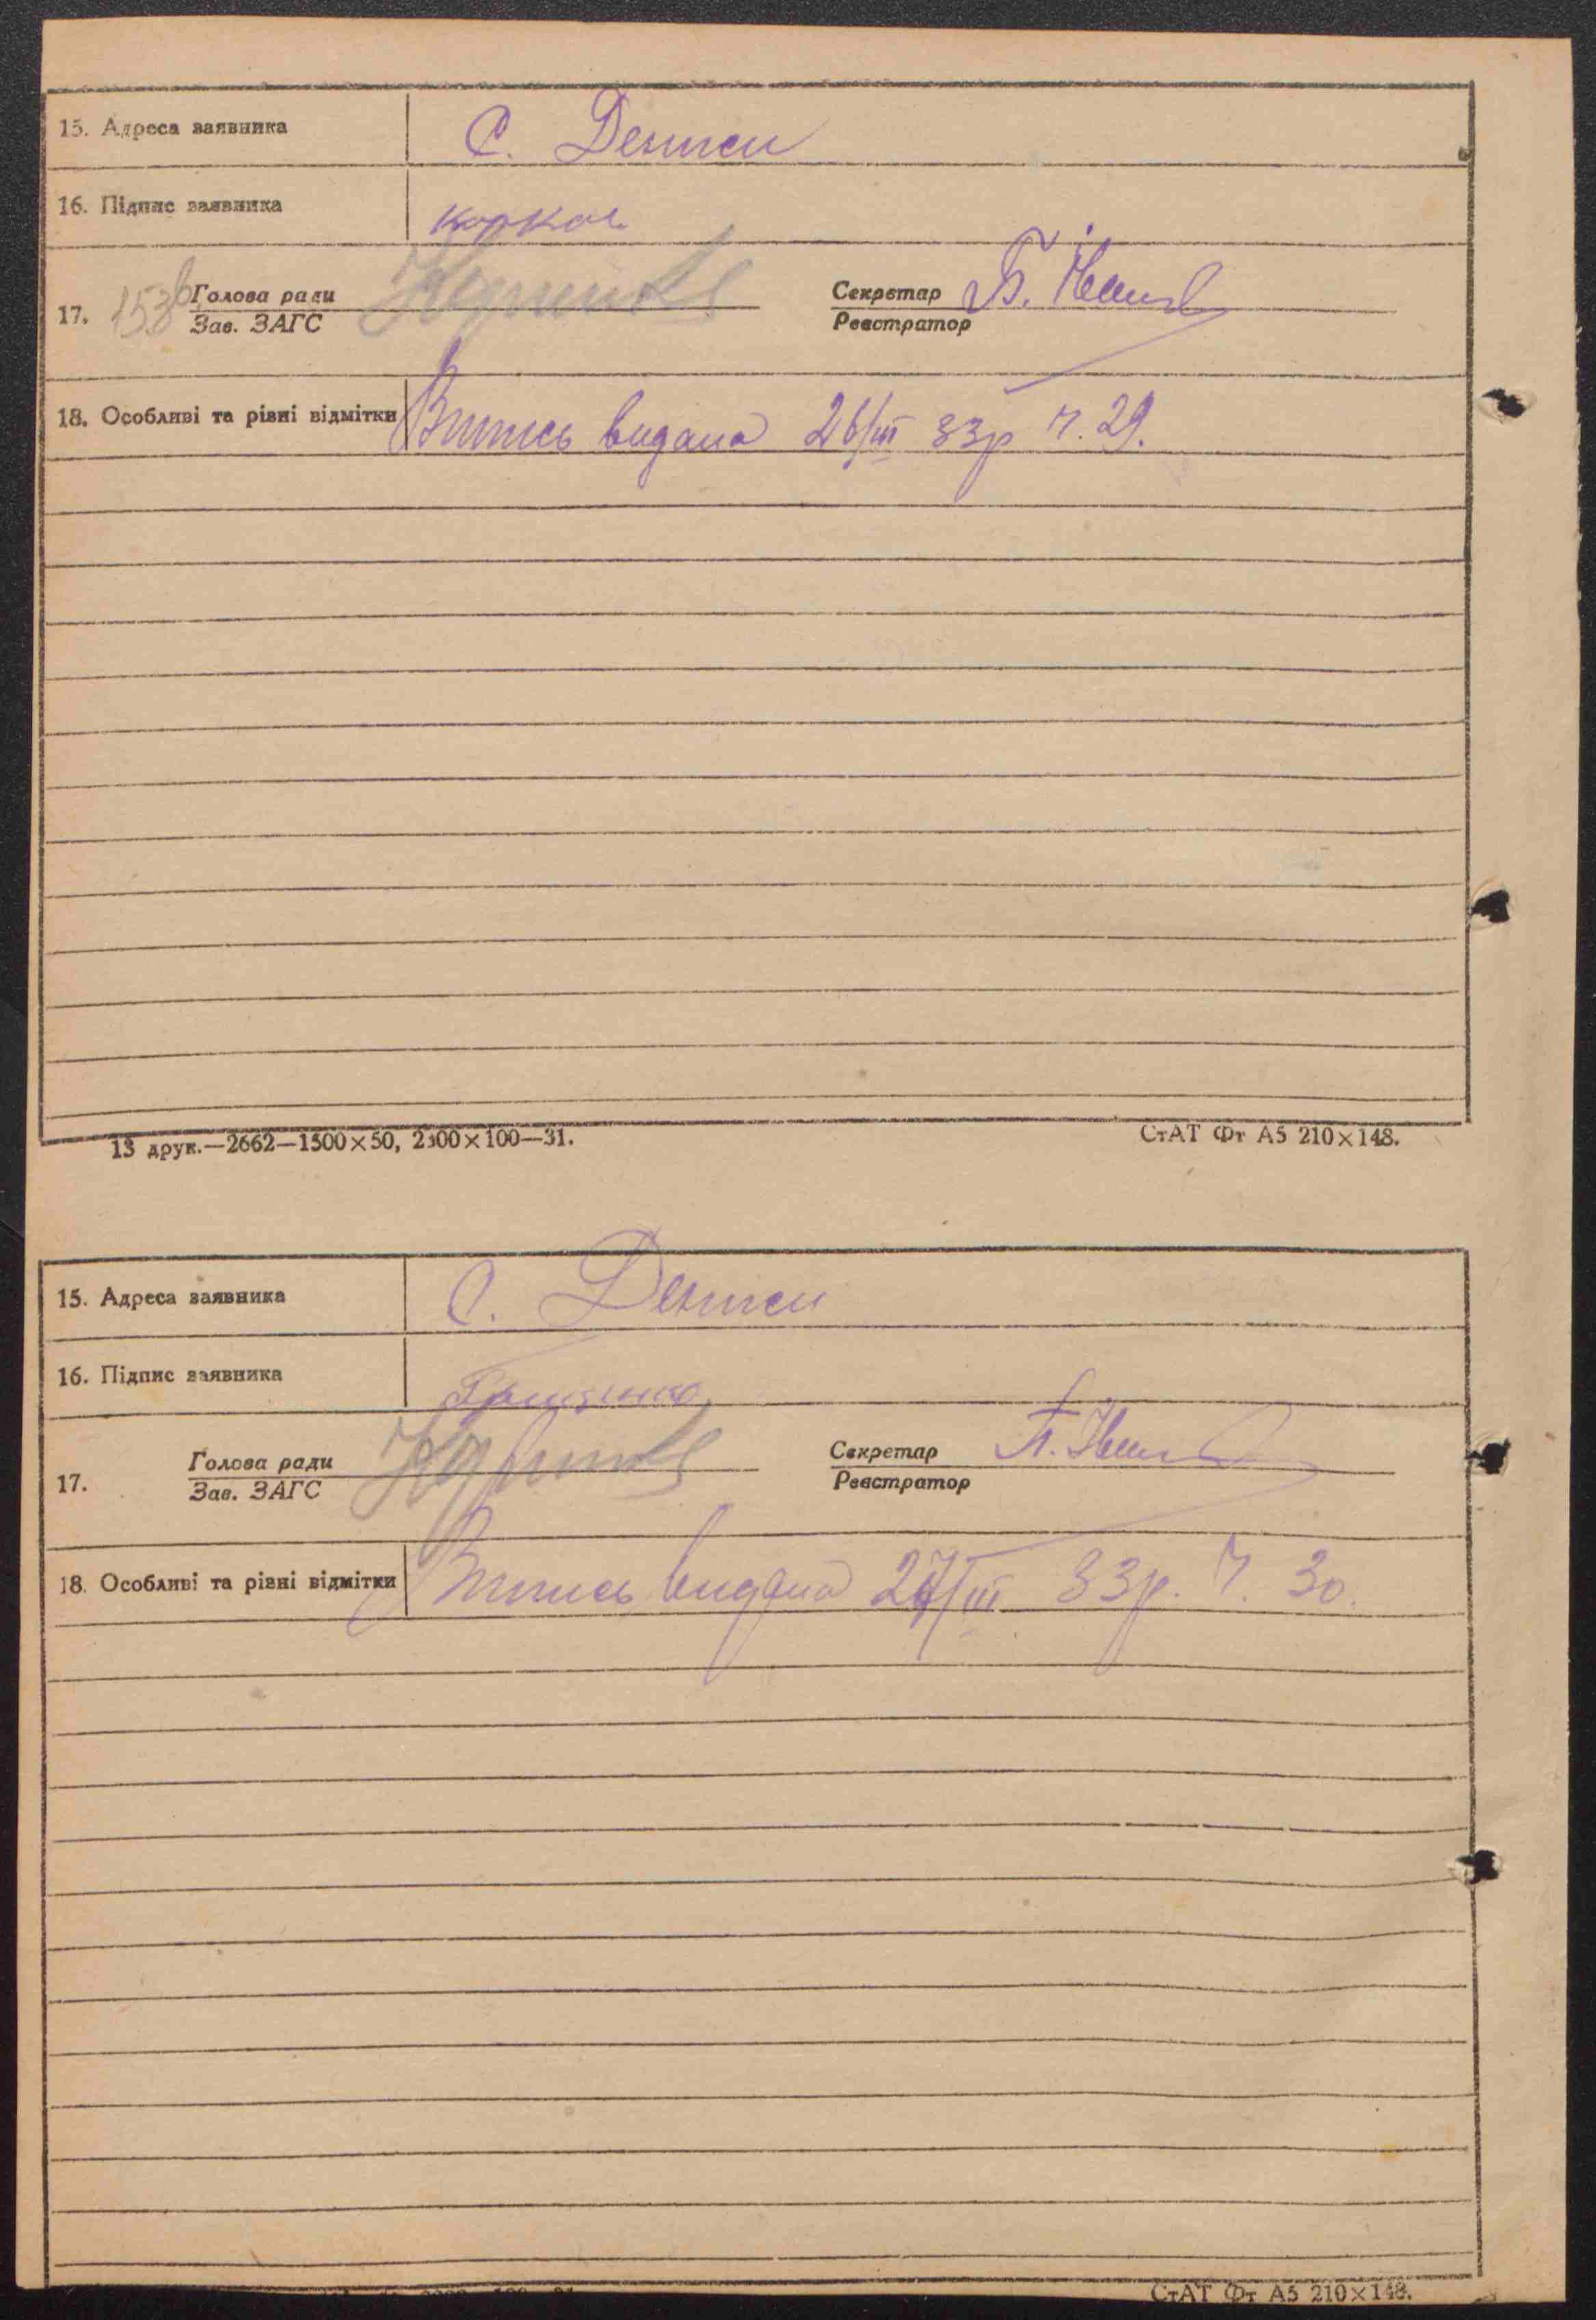 15. Адреса заявника С. Дениси
16. Підпис заявника
17. 153в Голова ради Секретар
Зав. ЗАГС Реєстратор
18. Особливі та різні відмітки Випись видана 26/III 33р Ч. 29.
13 друк.—2662—1500×50, 2300×100—31. СтАТ Фт А5 210×148.
15. Адреса заявника С. Дениси
16. Підпис заявника
17. Голова ради Секретар
Зав. ЗАГС Реєстратор
18. Особливі та різні відмітки Випись видана 27/III 33р. Ч. 30.
СтАТ Фт А5 210×148.